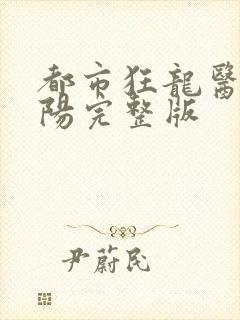 都市狂龍醫
陽完整版
尹蔚民